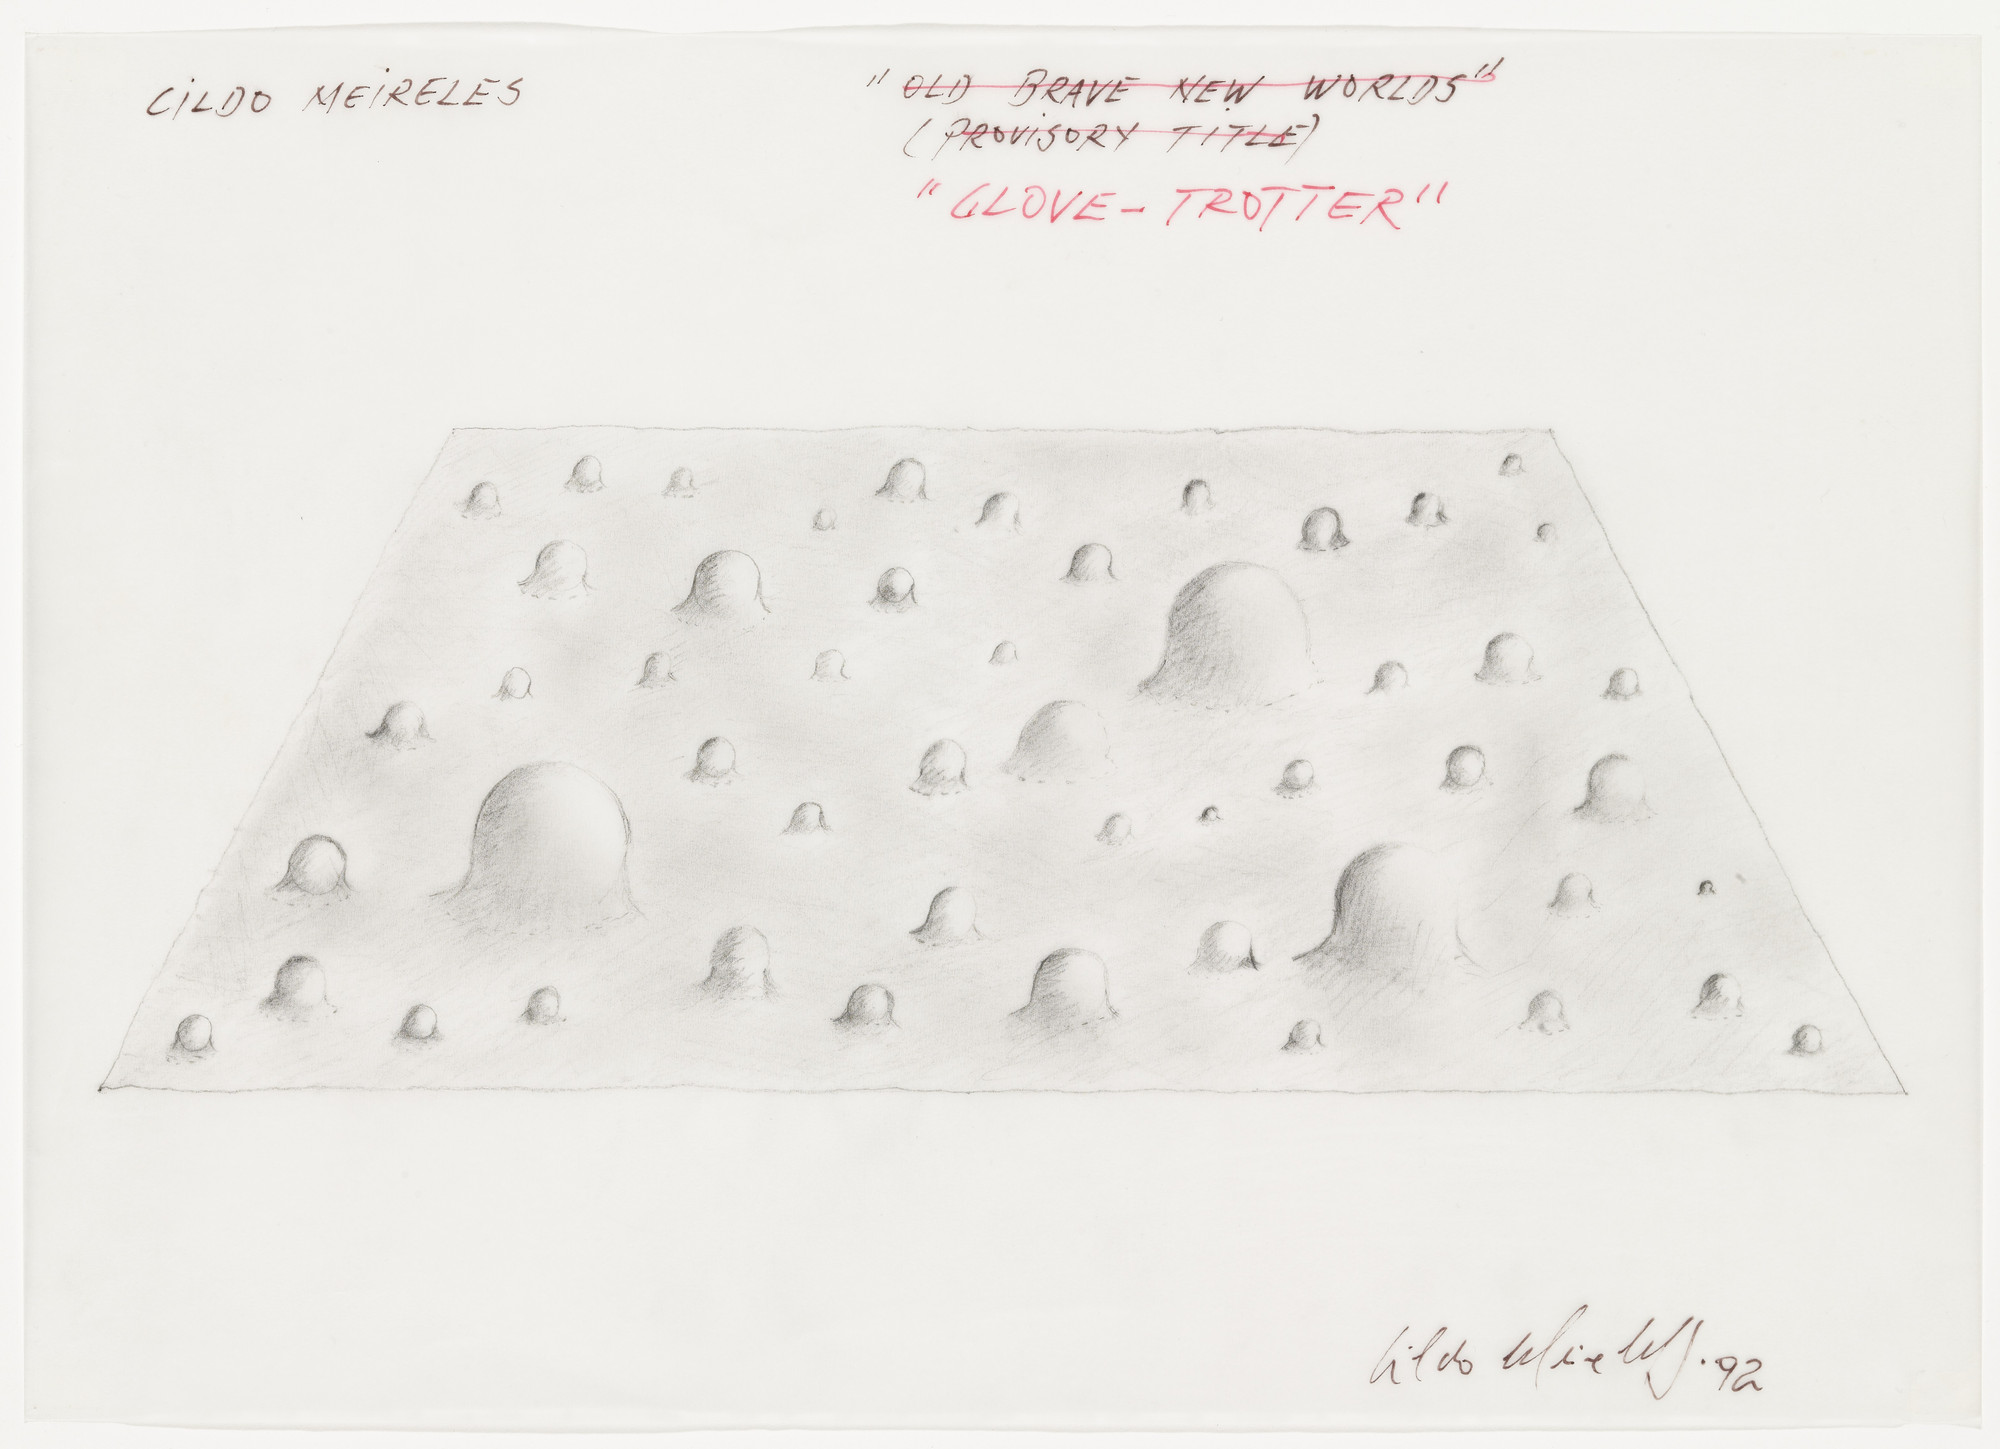 CiLDO MEiRELES
"OLD BRAVE NEW WORLDS"
(PROViSORY TITLE)
"GLOVE-TROTTER"
Cildo Meireles.92